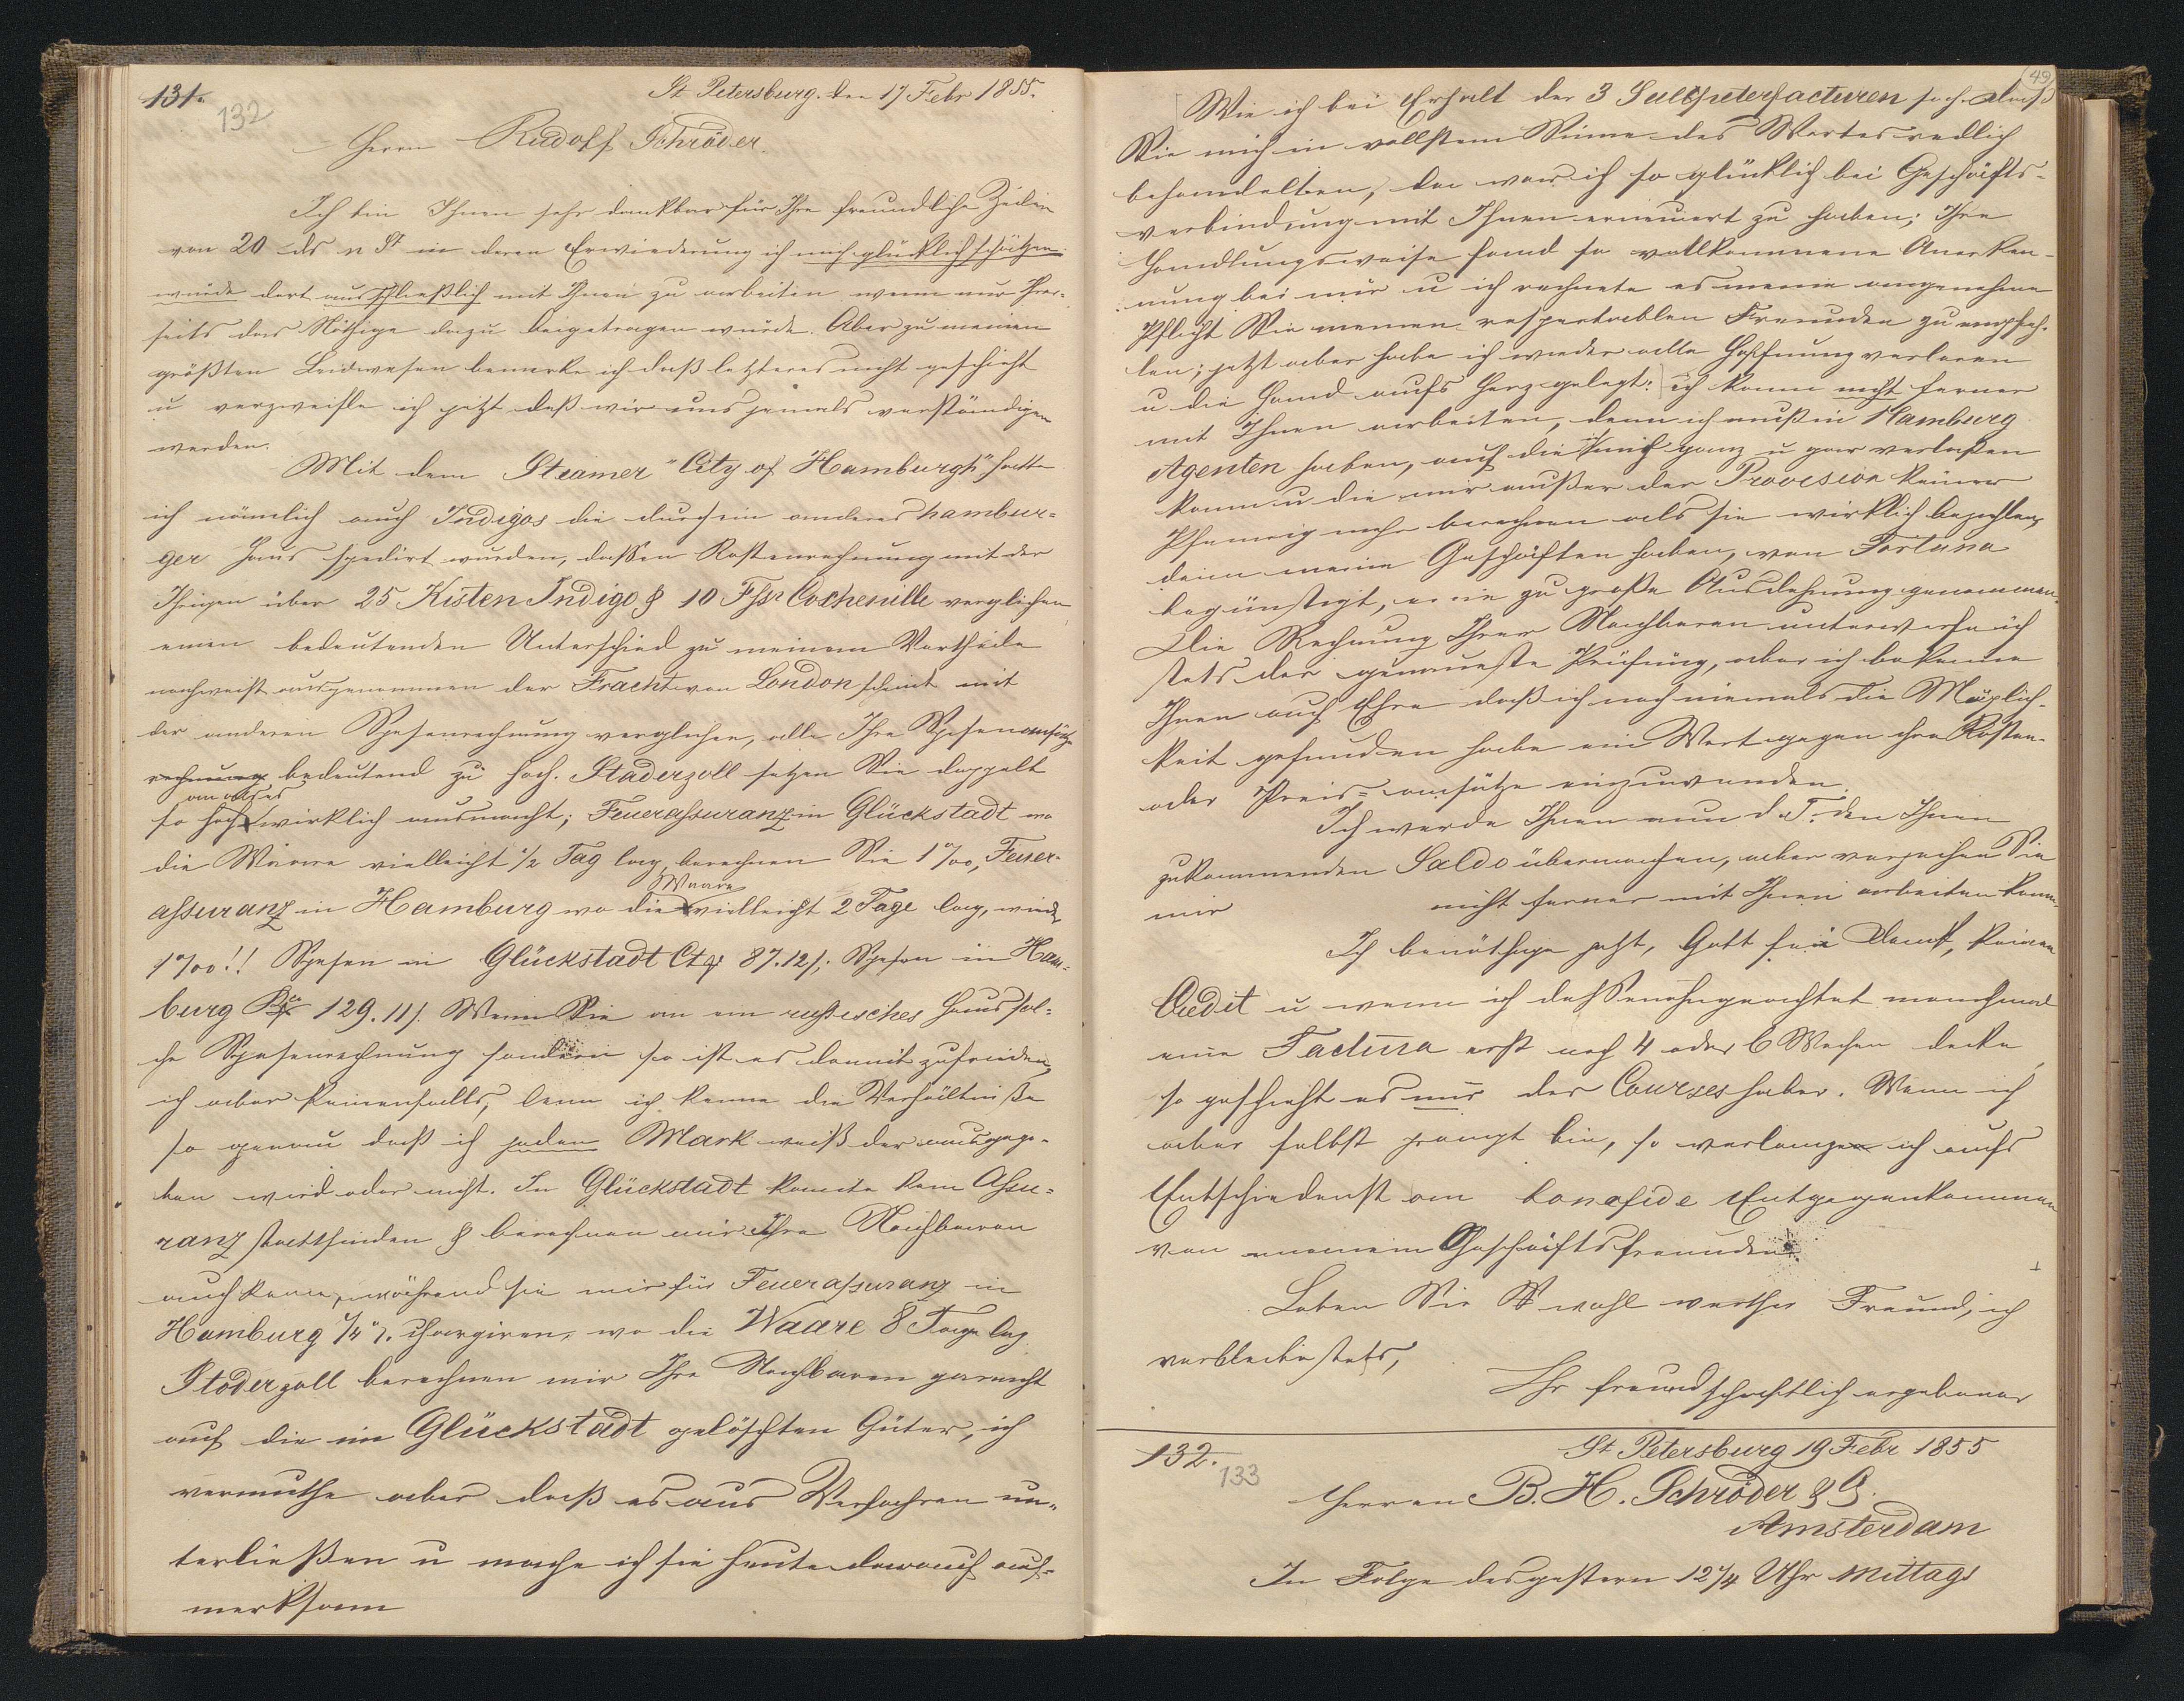 131.
132
St Petersburg. den 17 Febr 1855.
Herrn Rudolf Schröder.
Ich bin Ihnen sehr dankbar für Ihre freundliche Zeilen
von 20 ds n St in deren Erwiederung ich mich glücklich schätzen
würde dort ausschließlich mit Ihnen zu arbeiten wenn nur Ihrer-
seits das Nöthige dazu beigetragen würde. Aber zu meinem
größten Leidwesen bemerke ich daß letzteres nicht geschieht
u verzweifle ich jetzt daß wir uns jemals verständigen
werden.
Mit dem Steamer "City of Hamburgh" hatte
ich nämlich auch Indigos die durch ein anderes hambur-
ger Haus spedirt wurden, dessen Kostenrechnung mit der
Ihrigen über 25 Kisten Indigo & 10 Fss Cochenille verglichen
einen bedeutenden Unterschied zu meinem Vortheile
nachweist ausgenommen der Fracht von London scheint mit
der anderen Spesenrechnung verglichen, alle Ihre Spesenansätze
rechnung bedeutend zu hoch. Staderzoll setzen Sie doppelt
so hoch an als es wirklich ausmacht; Feuerassuranz in Glückstadt wo
die Waare vielleicht 1/2 Tag lag, berechnen Sie 1‰, Feuer-
assuranz in Hamburg wo die Waare vielleicht 2 Tage lag, wieder
1‰!! Spesen in Glückstadt Ct 87.12/; Spesen in Ham-
burg Bco 129.11/. Wenn Sie an ein russisches Haus sol-
che Spesenrechnung senden so ist es damit zufrieden,
ich aber keinenfalls, denn ich kenne die Verhältniße
so genau daß ich jeden Mark weiß der ausgege-
ben wird oder nicht. In Glückstadt konnte kein Assu-
ranz stattfinden & berechnen mir Ihre Nachbaren
auch keine, während sie mir für Feuerassuranz in
Hamburg 1/4 ‰ chargiren, wo die Waare 8 Tage lag
Stoderzoll berechnen mir Ihre Nachbaren garnicht
auf die im Glückstadt gelöschten Güter, ich
vermuthe aber daß es aus Versehen un-
terließen u mache ich sie heute darauf auf-
merksam
49
Wie ich bei Erhalt der 3 Salpeterfacturen sah daß
Sie mich in vollstem Sinne des Wortes redlich
behandelten, da war ich so glücklich bei Geschäfts-
verbindung mit Ihnen erneuert zu haben; Ihre
Handlungsweise fand so vollkommene Anerken-
nung bei mir u ich rechnete es meine angenehme
Pflicht Sie meinen respectablen Freunden zu empfeh-
len; jetzt aber habe ich wieder alle Hoffnung verloren
u die Hand aufs Herz gelegt: ich kann nicht ferner
mit Ihnen arbeiten, denn ich muß in Hamburg
Agenten haben, auf die ich mich ganz u gar verlaßen
kann u die mir außer der Provision keinen
Pfennig mehr berechnen als sie wirklich bezahlen,
denn meine Geschäften haben, von Fortuna
begünstigt, eine zu große Ausdehnung genommen.
Die Rechnung Ihrer Nachbaren unterwerfe ich
stets der genauesten Prüfung, aber ich bekenne
Ihnen auf Ehre daß ich noch niemals die Möglich-
keit gefunden habe ein Wort gegen ihre Kosten-
oder Preis-ansätze einzuwenden.
Ich werde Ihnen nun d. T. den Ihnen
zukommenden Saldo übermachen, aber verzeihen Sie
mir nicht ferner mit Ihnen arbeiten kann.
Ich benöthige jetzt, Gott sei Dank, keinen
Credit u wenn ich dessenohngeachtet manchmal
eine Factura erst nach 4 oder 6 Wochen decke,
so geschieht es nur des Courses halber. Wenn ich
aber selbst prompt bin, so verlange ich aufs
Entschiedenst ein bonafide Entgegenkommen
von meinen Geschäftsfreunden.
Leben Sie wohl werther Freund, ich
verbleibe stets,
Ihr freundschaftlich ergebener
132.
133
St Petersburg 19 Febr 1855
Herren B. H. Schröder & Co.
Amsterdam
In Folge des gestern 12 1/4 Uhr Mittags